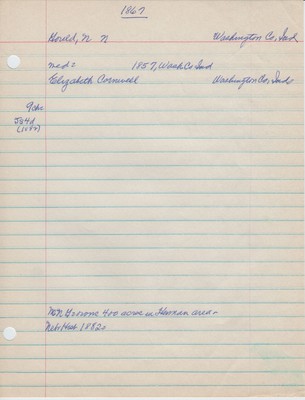 1867
Gould, N N Washington Co, Ind
med= 1857, Wash Co Ind
Elizabeth Cornwell Washington Co, Ind
9ch=
J84d
(1087)
NN G owns 400 acres in Harlan area=
Neb: Hist 1882=